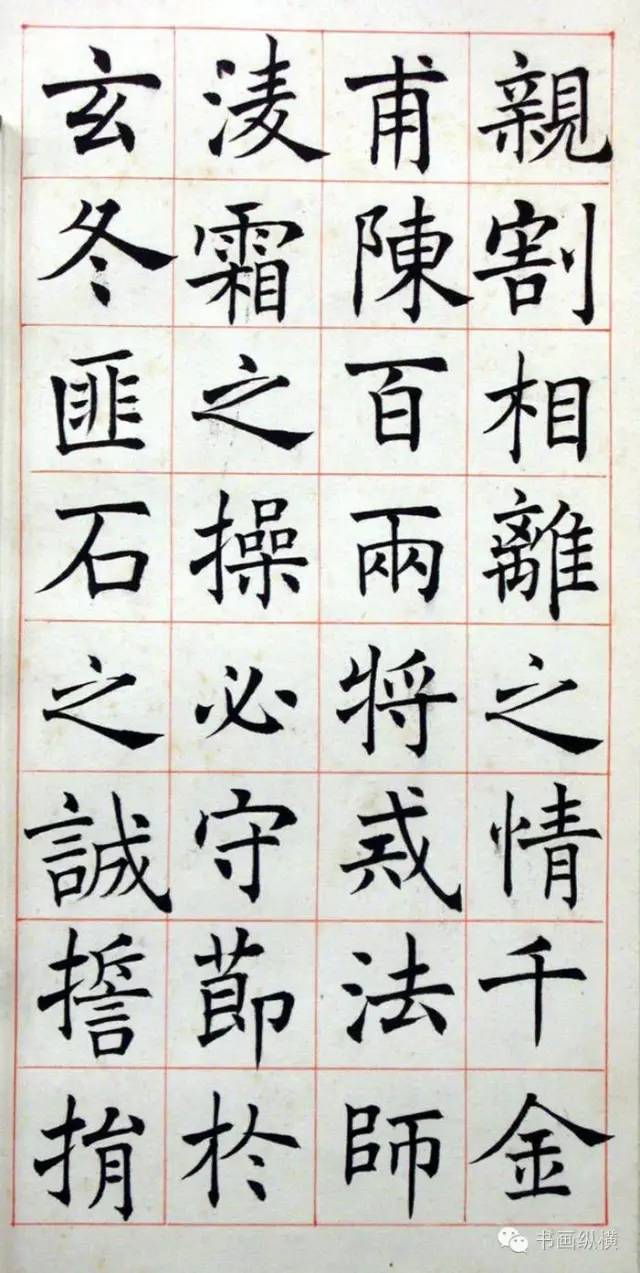 親割相離之情千金
甫陳百兩將戒法師
淩霜之操必守節於
玄冬匪石之誠誓捐
书画纵横